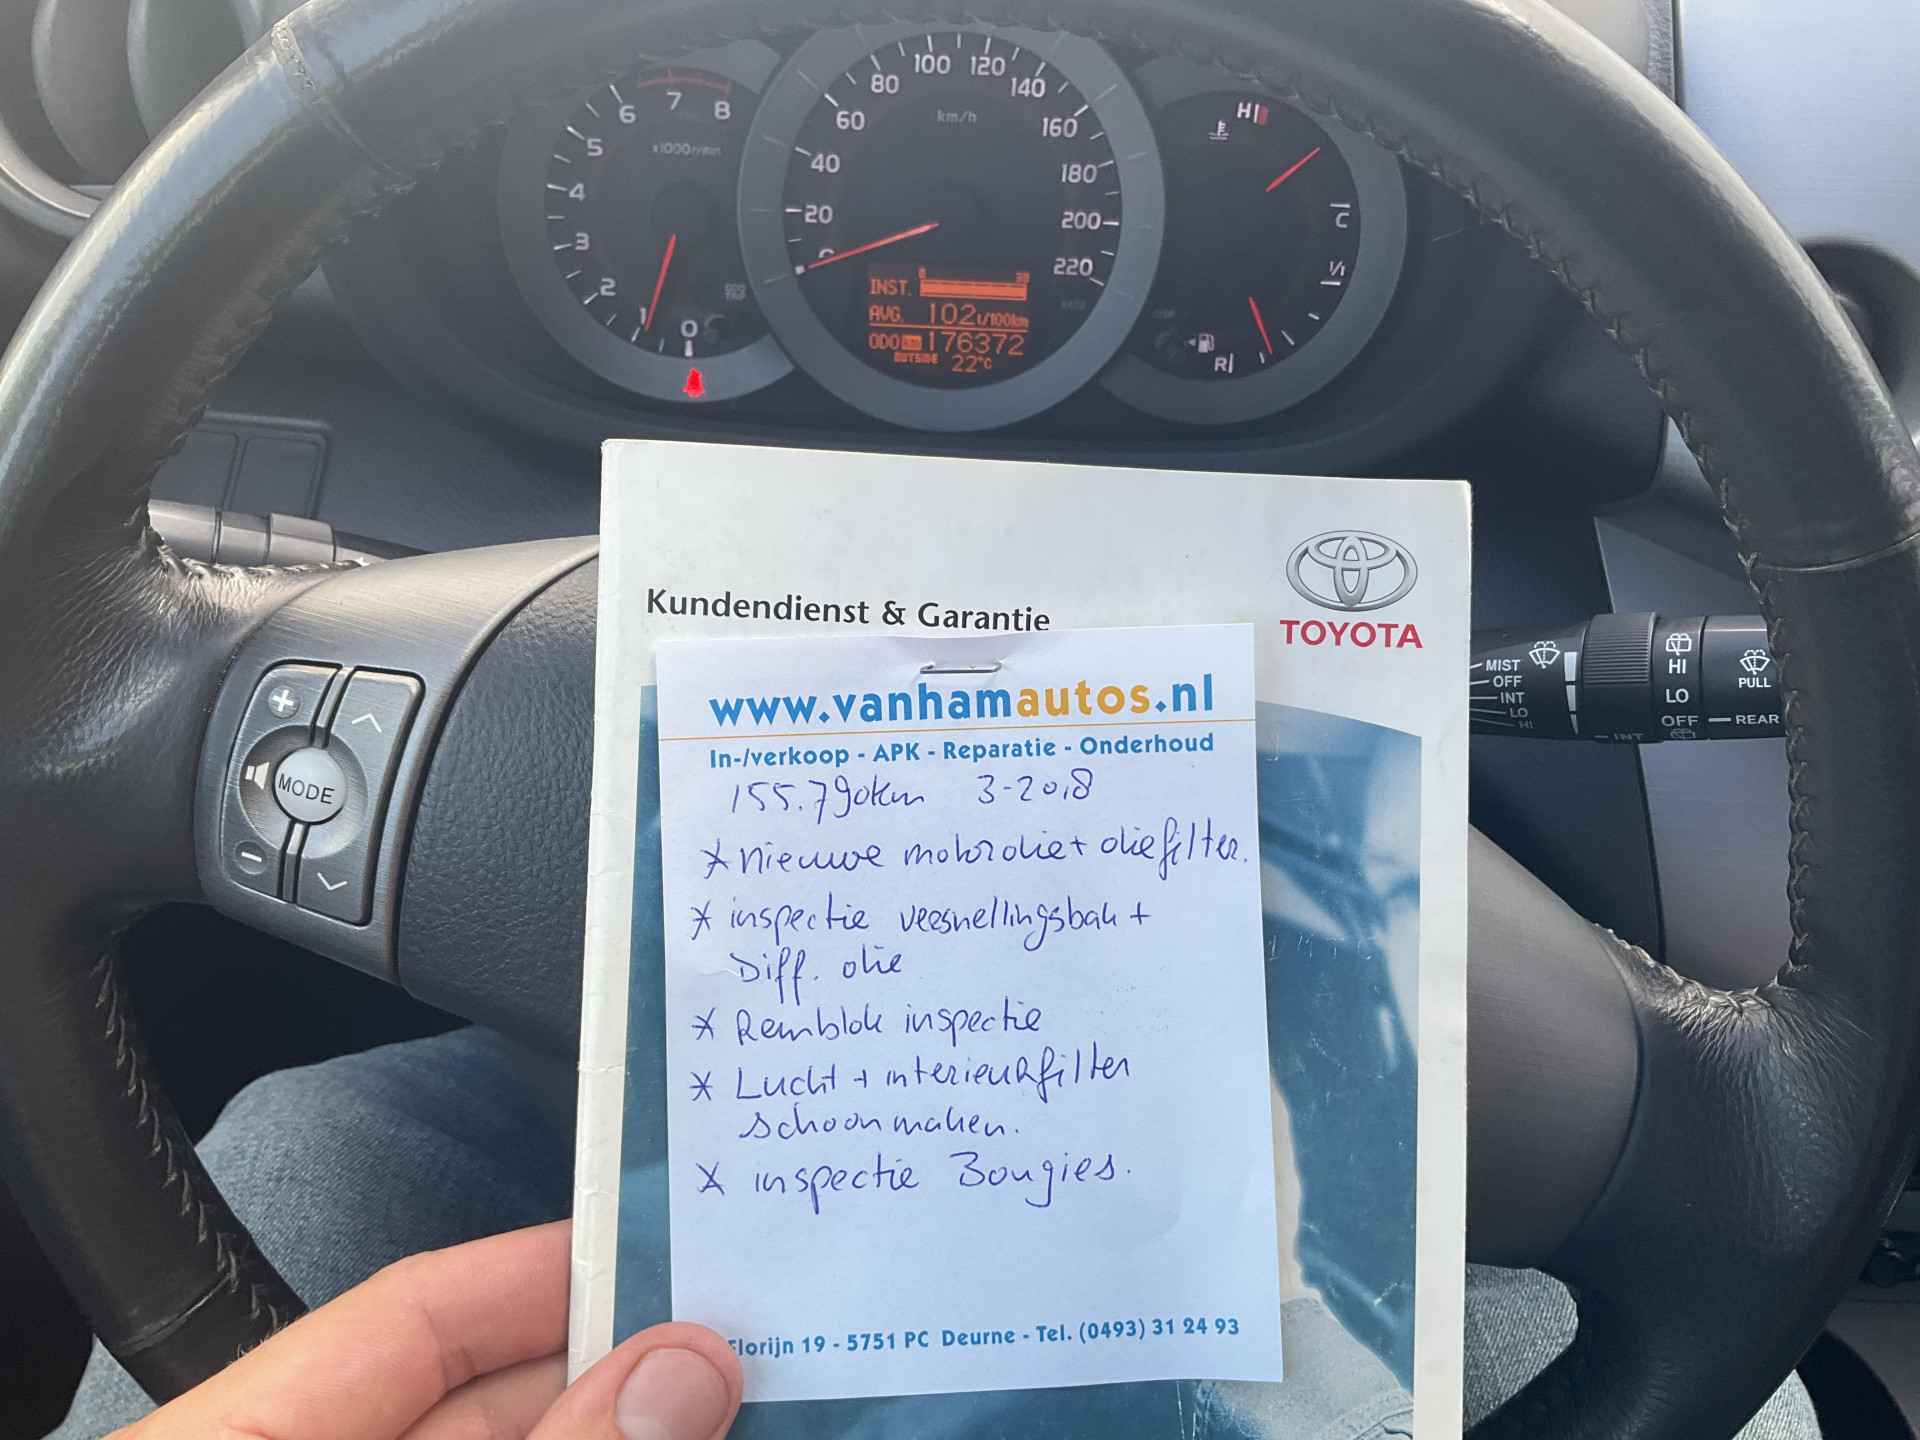 6 7 8
5
4
3
2
1
0
x1000r/min
100 120
80 140
60 km/h 160
40 180
20 200
220
INST.
AVG. 10.2 L/100km
ODO km 176372
OUTSIDE 22°C
H
C
1/1
R
Kundendienst & Garantie
TOYOTA
www.vanhamautos.nl
In-/verkoop - APK - Reparatie - Onderhoud
155.790km 3-2018
* nieuwe motorolie + oliefilter.
* inspectie versnellingsbak +
Diff. olie
* Remblok inspectie
* Lucht + interieurfilter
schoonmaken.
* inspectie Bougies.
Florijn 19 - 5751 PC Deurne - Tel. (0493) 31 24 93
+
MODE
−
MIST
OFF
INT
LO
HI
HI
LO
OFF
INT
PULL
REAR